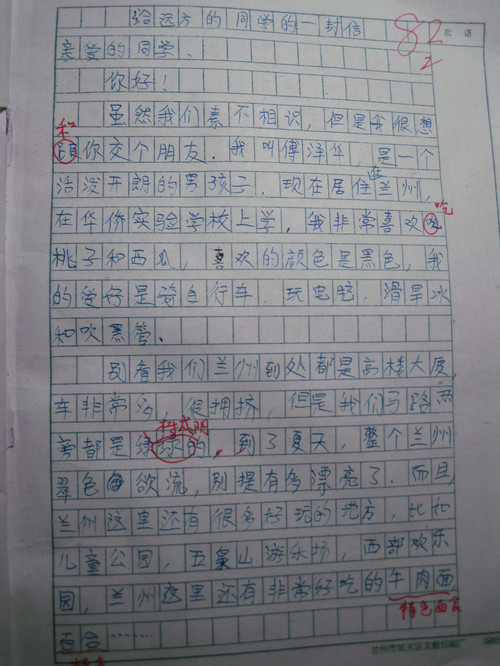 给远方的同学的一封信
82
2
批语
亲爱的同学、
你好！
虽然我们素不相识，但是我很想
和
你交个朋友．我叫傅泽华，是一个
活泼开朗的男孩子．现在居住在兰州，
吃
在华侨实验学校上学．我非常喜欢
桃子和西瓜，喜欢的颜色是黑色，我
的爱好是骑自行车．玩电脑．滑旱冰
和吹黑管、
别看我们兰州到处都是高楼大厦，
车非常多，很拥挤，但是我们马路两
树成阴
旁都是绿绿的，到了夏天，整个兰州
翠色欲流，别提有多漂亮了．而且，
兰州这里还有很多好玩的地方，比如
儿童公园，五泉山游乐场，西部欢乐
园，兰州这里还有非常好吃的牛肉面
特色面食
百合……
兰州市城关区文教印刷厂